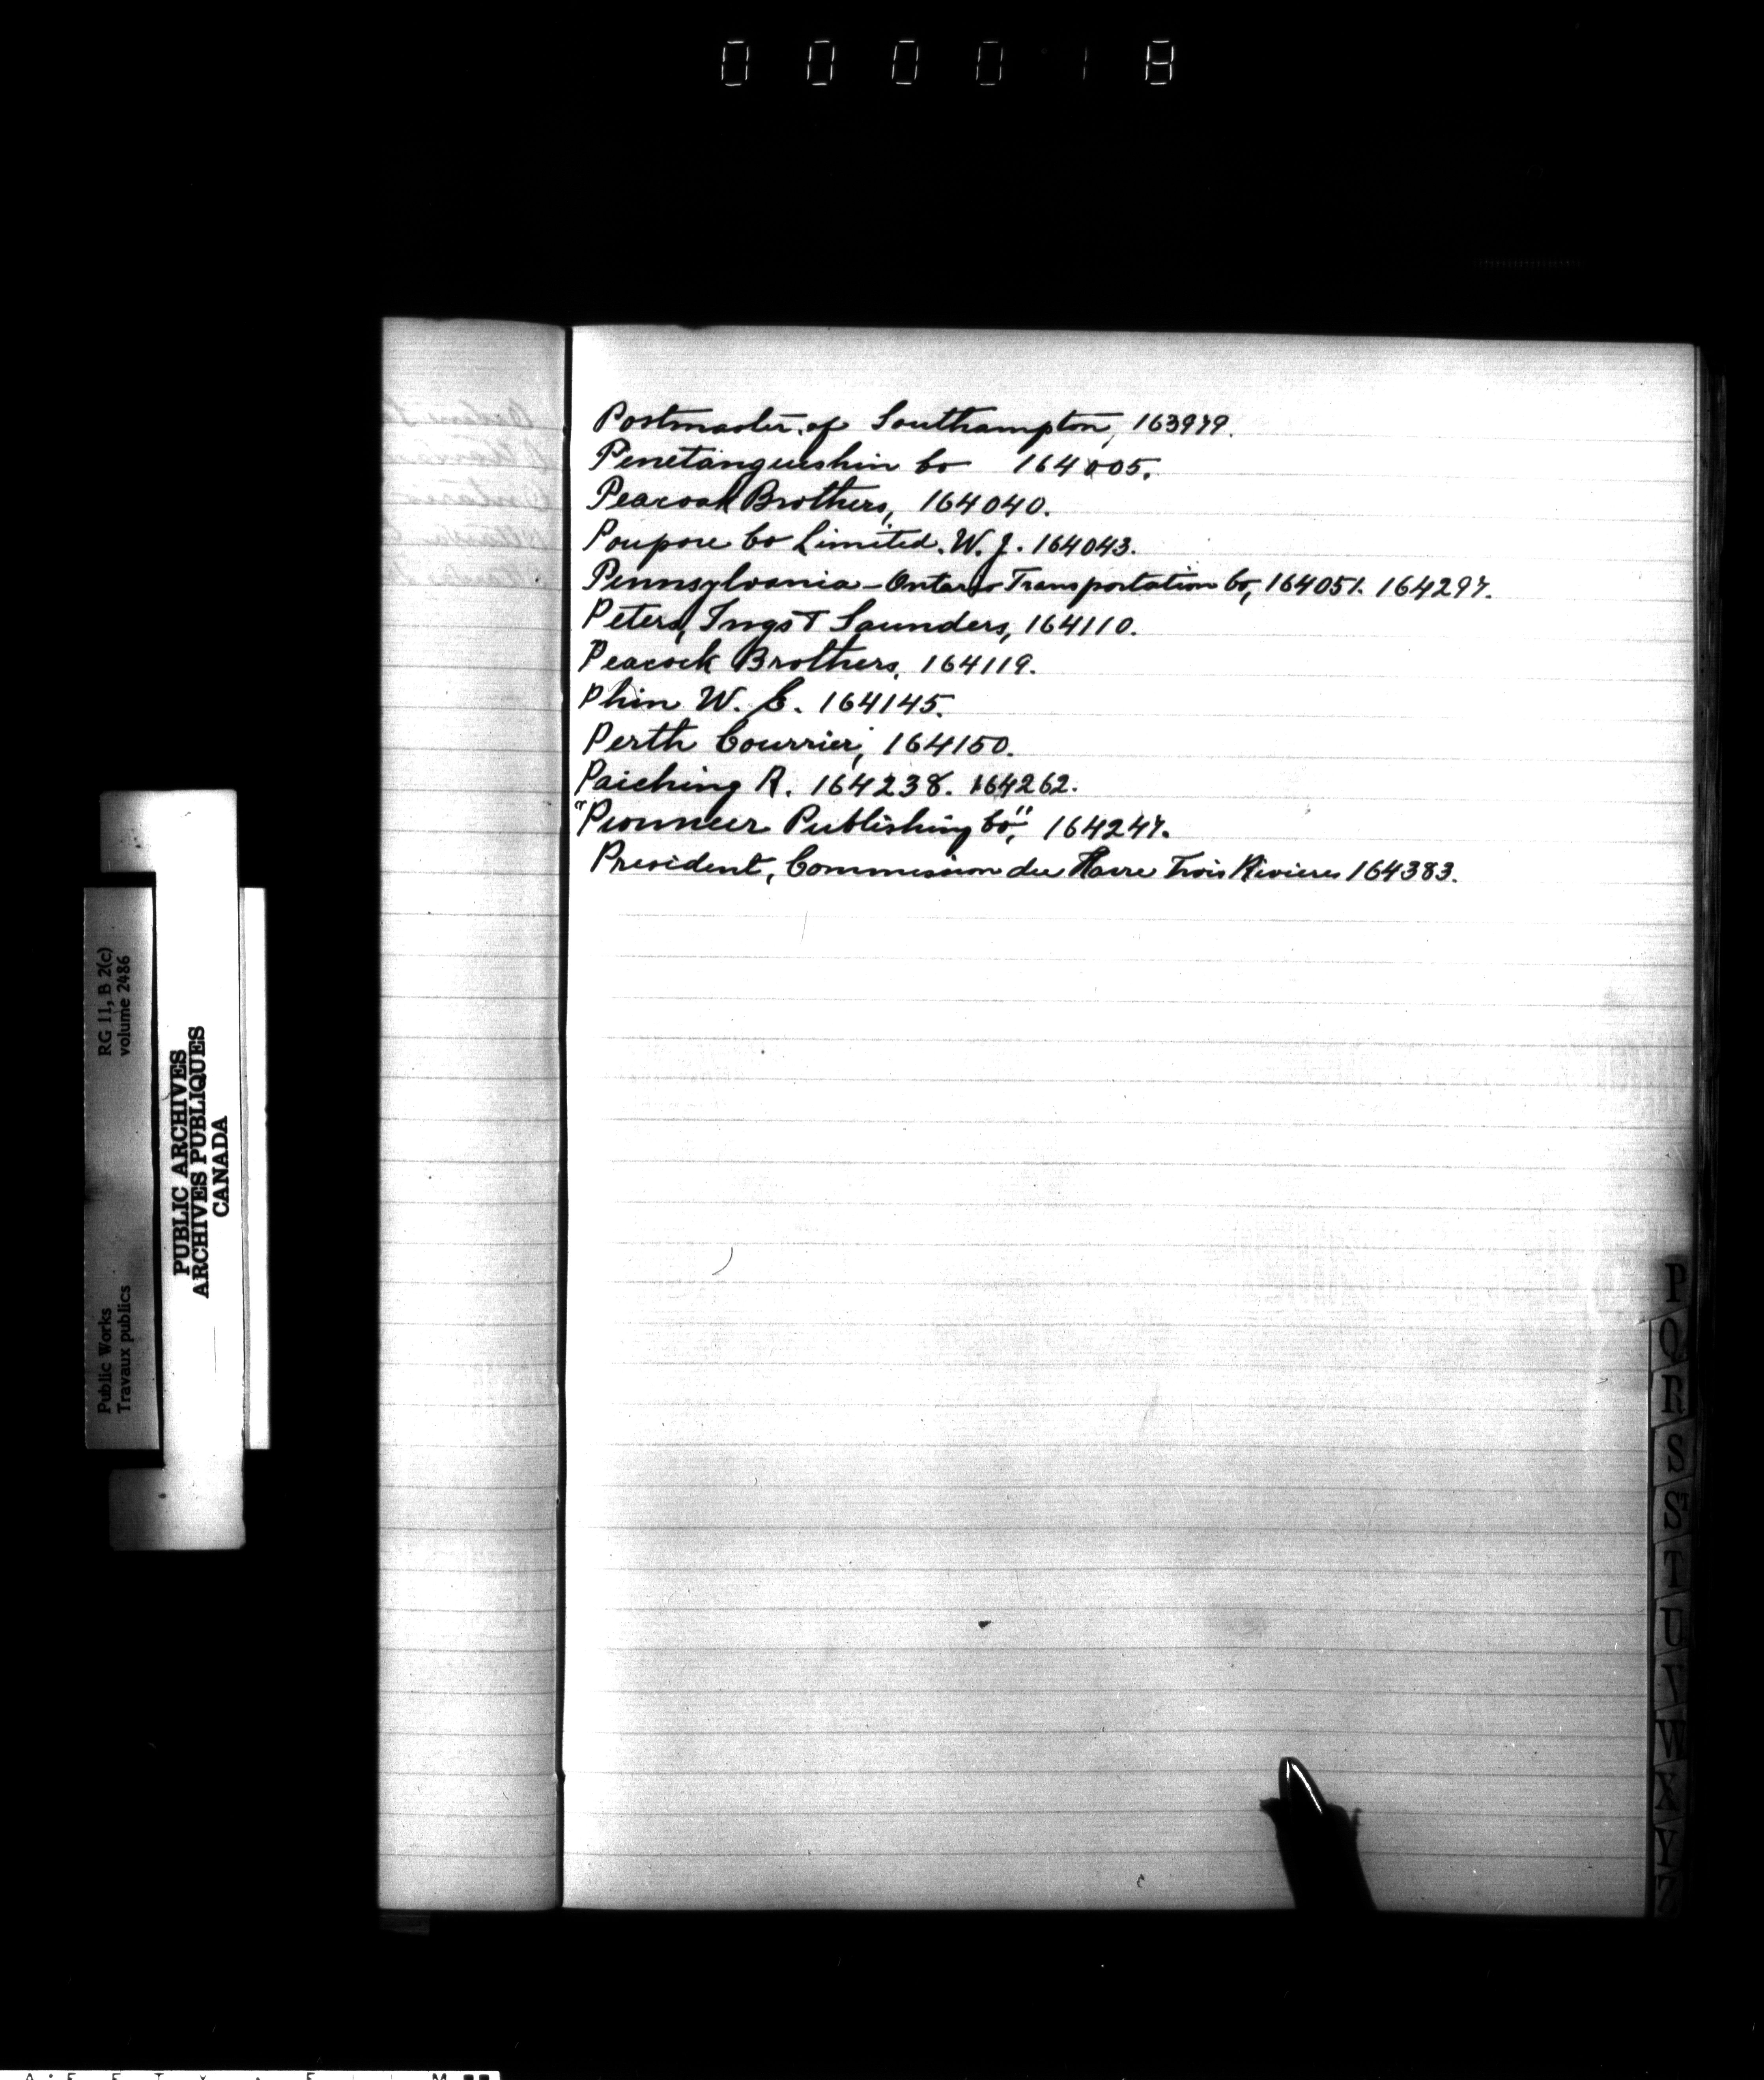 000018
Postmaster of Southampton, 163979.
Penetanguishin Co 164005.
Peacock Brothers, 164040.
Poupore Co Limited. W. J. 164043.
Pennsylvania - Ontario Transportation Co, 164051. 164297.
Peters, Ings & Saunders, 164110.
Peacock Brothers, 164119.
Phin W. E. 164145.
Perth Courrier, 164150.
Paiching R. 164238. 164262.
"Pionneer Publishing Co", 164247.
President, Commission du Havre Trois Rivieres 164383.
RG 11, B 2(c)
volume 2486
Public Works
Travaux publics
PUBLIC ARCHIVES
ARCHIVES PUBLIQUES
CANADA
P
Q
R
S
ST
T
U
V
W
X
Y